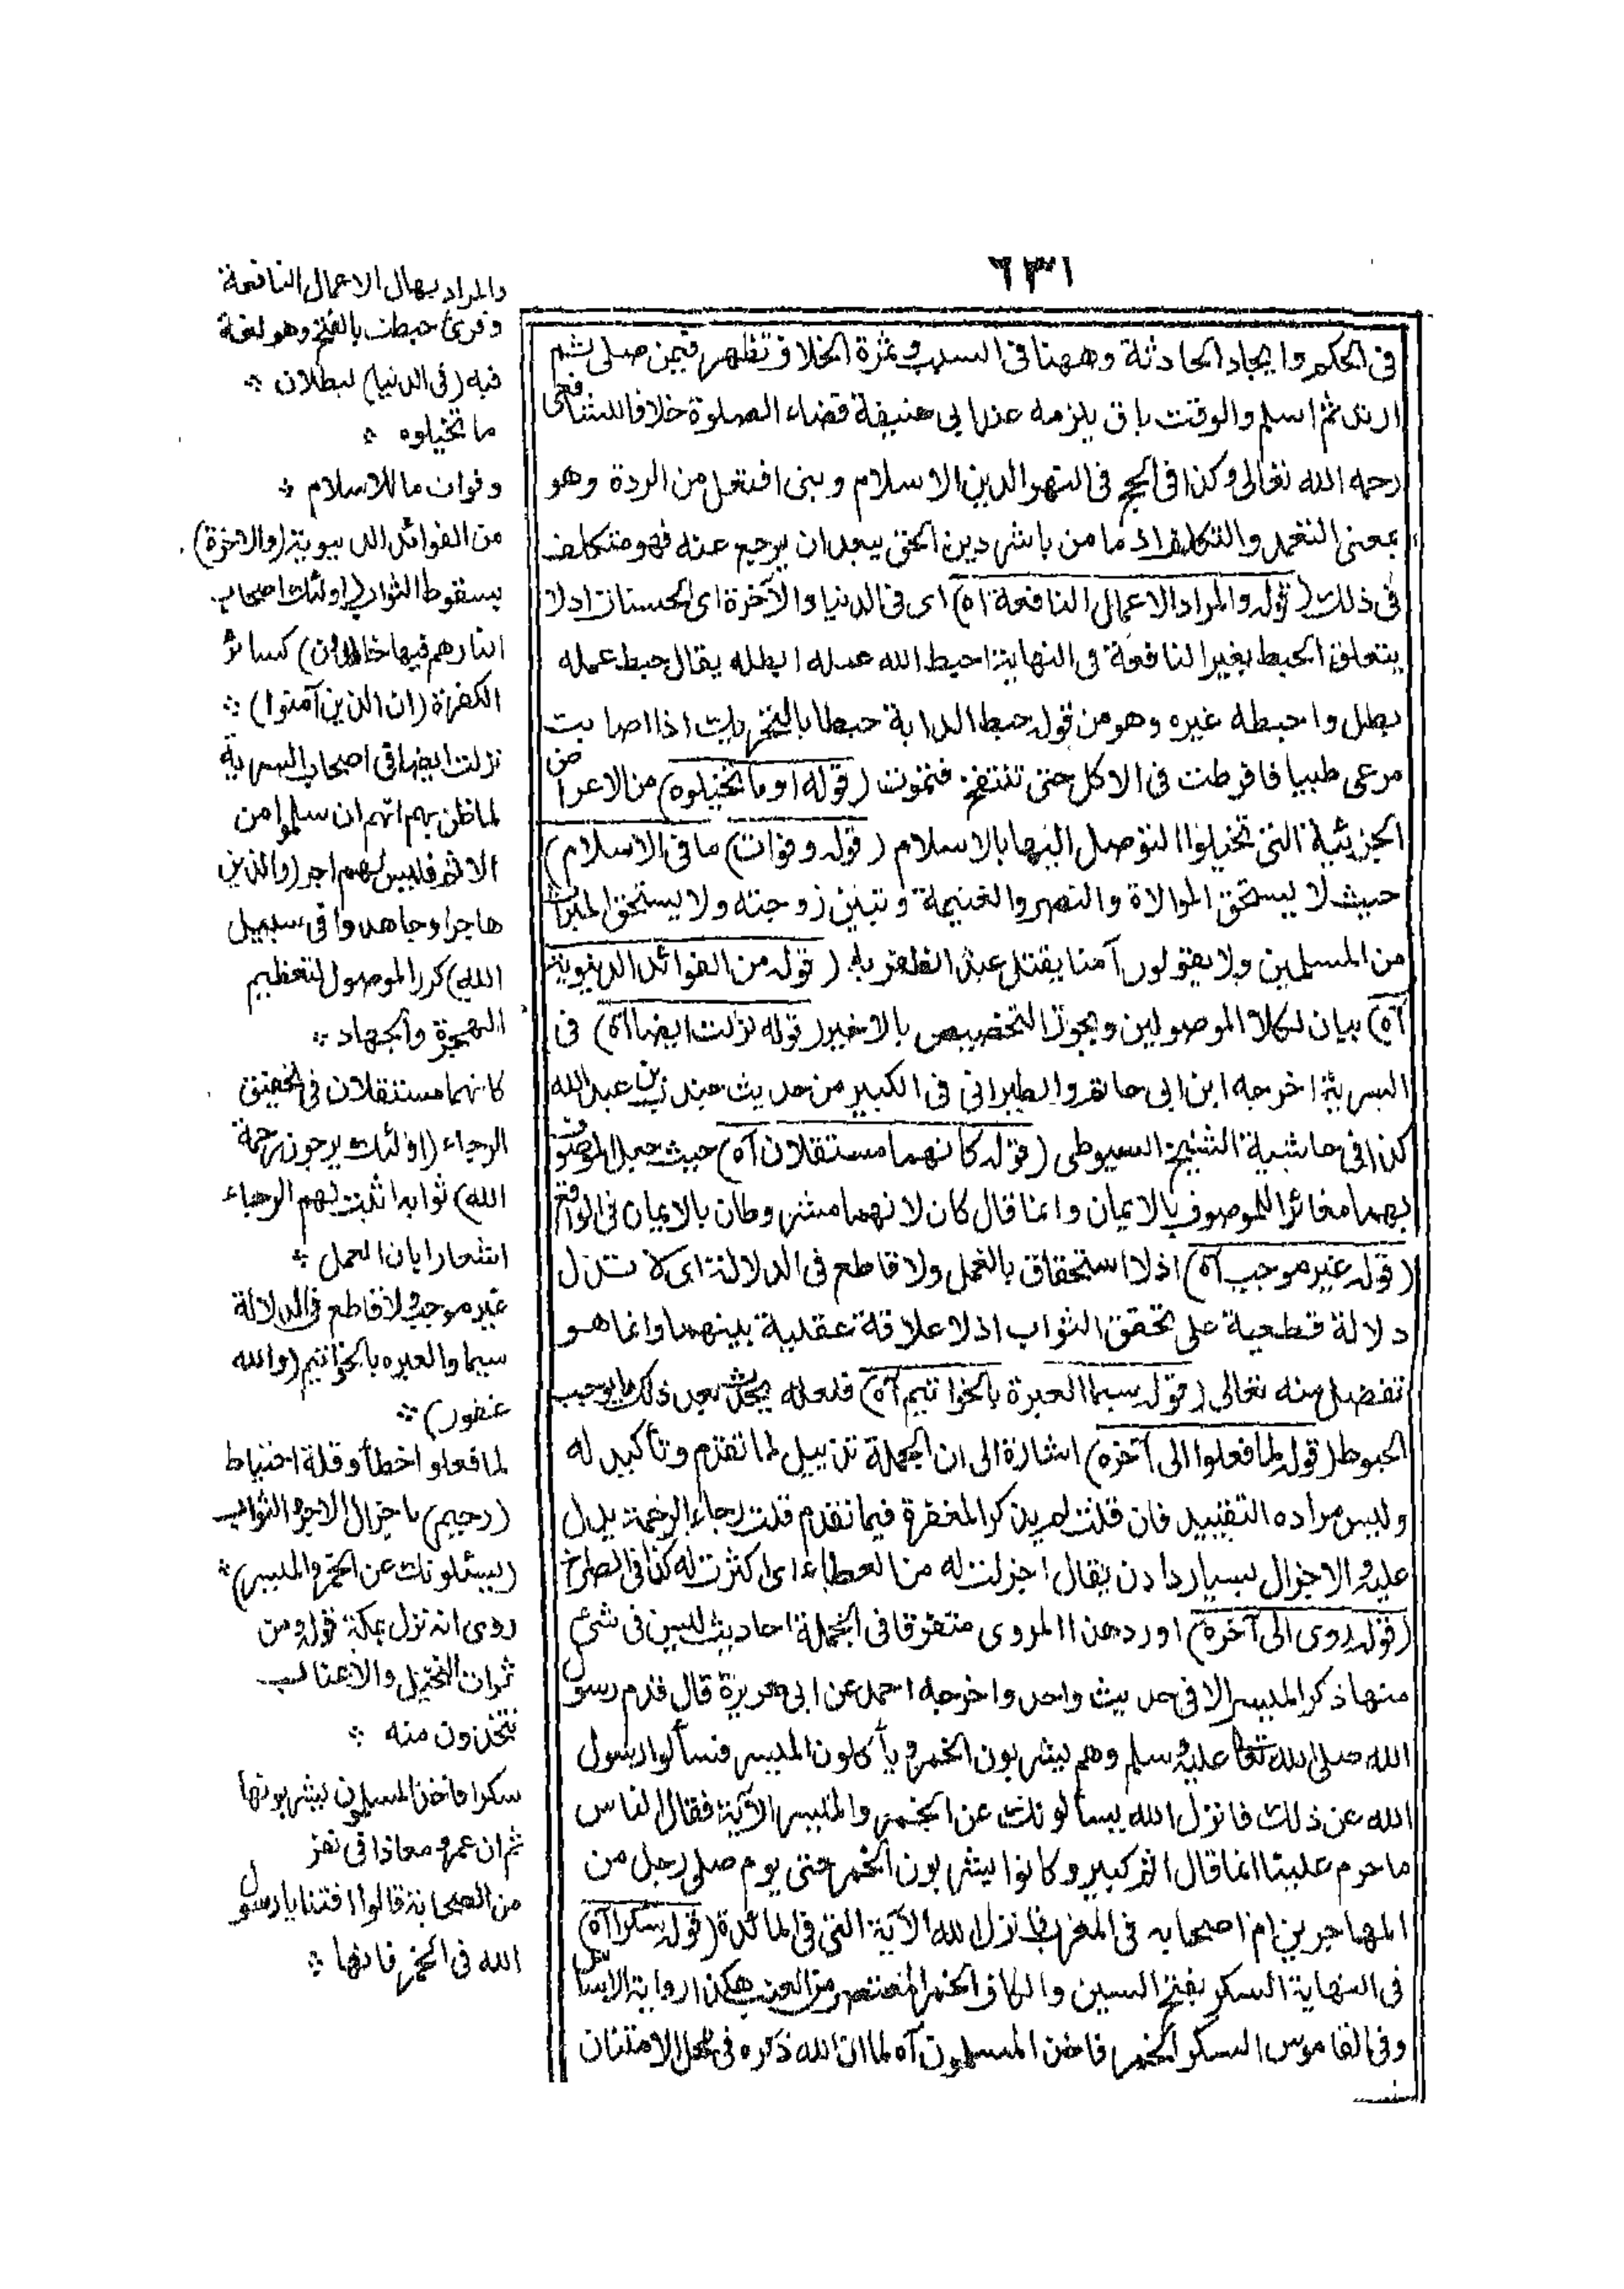 ٦٣١
فى الحكم وايجاد الحادثة وههنا فى السبب وثمرة الخلاف تظهر فيمن صلى ثم
ارتد ثم اسلم والوقت باق يلزمه عند ابى حنيفة قضاء الصلوة خلافا للشافعى
رحمه الله تعالى وكذا فى الحج فى التهو الدين الاسلام وبنى افتعل من الردة وهو
بمعنى التعمل والتكلف اذ ما من باشر دين الحق يبعد ان يرجع عنه فهو متكلف
فى ذلك (قوله والمراد الاعمال النافعة اه) اى فى الدنيا والآخرة اى الحسنات اذ لا
يتعلق الحبط بغير النافعة فى النهاية احبط الله عمله ابطله يقال حبط عمله
بطل واحبطه غيره وهو من قوله حبط الدابة حبطا بالتحريك اذا اصابت
مرعى طيبا فافرطت فى الاكل حتى تنتفخ فتموت (قوله او ما تخيلوه) من الاعراض
الجزئية التى تخيلوا التوصل اليها بالاسلام (قوله وفوات) ما فى الاسلام)
حيث لا يستحق الموالاة والنصر والغنيمة وتبين زوجته ولا يستحق الميراث
من المسلمين ولا يفولور آمنا يقتل عند الظفر به (قوله من الفوائد الدنيوية
آه) بيان لكلا الموصولين ويجوز التخصيص بالاخير (قوله نزلت ايضا آه) فى
السرية اخرجه ابن ابى حاتم والطبرانى فى الكبير من حديث جندب بن عبد الله
كذا فى حاشية الشيخ السيوطى (قوله كانهما مستقلان آه) حيث جعل الموصوف
بهما مغائرا للموصوف بالايمان وانما قال كان لانهما مشروطان بالايمان فى الواقع
(قوله غير موجب آه) اذ لا استحقاق بالعمل ولا قاطع فى الدلالة اى لا تدل
دلالة قطعية على تحقق الثواب اذ لا علاقة عقلية بينهما وانما هو
تفضل منه تعالى (قوله سيما العبرة بالخواتيم آه) فلعله يحدث بعد ذلك ما يوجب
الحبوط (قوله لما فعلوا الى آخره) اشارة الى ان الجملة تذييل لما تقدم وتأكيد له
وليس مراده التقييد فان قلت لم يذكر المغفرة فيما تقدم قلت رجاء الرحمة يدل
عليه والاجزال بسيار دادن يقال اجزلت له من العطاء اى اكثرت له كذا فى الصراح
(قوله روى الى آخره) اورد هذا المروى متفرقا فى الجملة احاديث ليس فى شئ
منها ذكر الميسر الا فى حديث واحد واخرجه احمد عن ابى هريرة قال قدم رسول
الله صلى الله تعا عليه وسلم وهم يشربون الخمر ويأكلون الميسر فسألوا رسول
الله عن ذلك فانزل الله يسألونك عن الخمر والميسر الآية فقال الناس
ما حرم علينا انما قال اثم كبير وكانوا يشربون الخمر حتى يوم صلى رجل من
المهاجرين ام اصحابه فى المغرب فانزل الله الآية التى فى المائدة (قوله سكرا آه)
فى النهاية السكر بفتح السين والكاف الخمر المعتصر من العنب هكذا رواية الاثبات
وفى القاموس السكر الخمر فاخذ المسلمون آه لما ان الله ذكره فى محل الامتنان
والمراد بها الاعمال النافعة
وقرئ حبطت بالفتح وهو لغة
فيه (فى الدنيا) لبطلان
ما تخيلوه
وفوات ما للاسلام
من الفوائد الدنيوية (والاخرة)
بسقوط الثواب (واولئك اصحاب
النار هم فيها خالدون) كسائر
الكفرة (ان الذين آمنوا)
نزلت ايضا فى اصحاب السرية
لما ظن بهم انهم ان سلموا من
الاثم فليس لهم اجر (والذين
هاجروا وجاهدوا فى سبيل
الله) كرر الموصول لتعظيم
الهجرة والجهاد
كانهما مستقلان فى تحقيق
الرجاء (اولئك يرجون رحمة
الله) ثوابه اثبت لهم الرجاء
اشعارا بان العمل
غير موجب ولا قاطع فى الدلالة
سيما والعبره بالخواتيم (والله
غفور)
لما فعلو اخطأ وقلة احتياط
(رحيم) باجزال الاجر والثواب
(يسئلونك عن الخمر والميسر)
روى انه نزل بمكة قوله ومن
ثمرات النخيل والاعناب
تتخذون منه
سكرا فاخذ المسلمون يشربونها
ثم ان عمر ومعاذا فى نفر
من الصحابة قالوا افتنا يا رسول
الله فى الخمر فانها